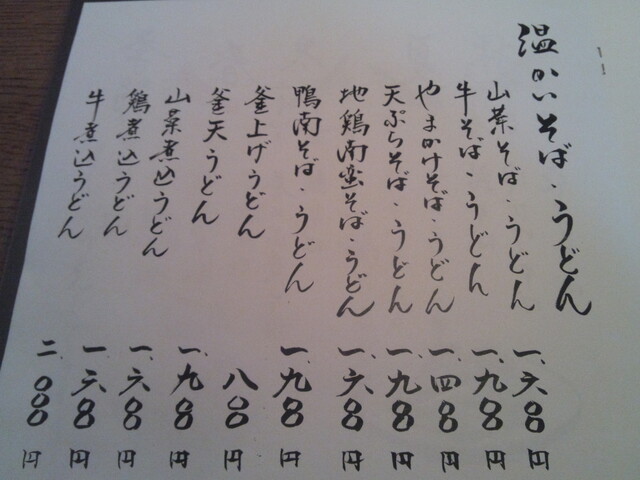 温かいそば・うどん
山菜そば・うどん 一、六〇〇円
牛そば・うどん 一、九〇〇円
やまかけそば・うどん 一、四〇〇円
天ぷらそば・うどん 一、九〇〇円
地鶏南蛮そば・うどん 一、六〇〇円
鴨南そば・うどん 一、九〇〇円
釜上げうどん 八〇〇円
釜天うどん 一、九〇〇円
山菜煮込うどん 一、六〇〇円
鶏煮込うどん 一、六〇〇円
牛煮込うどん 二、〇〇〇円